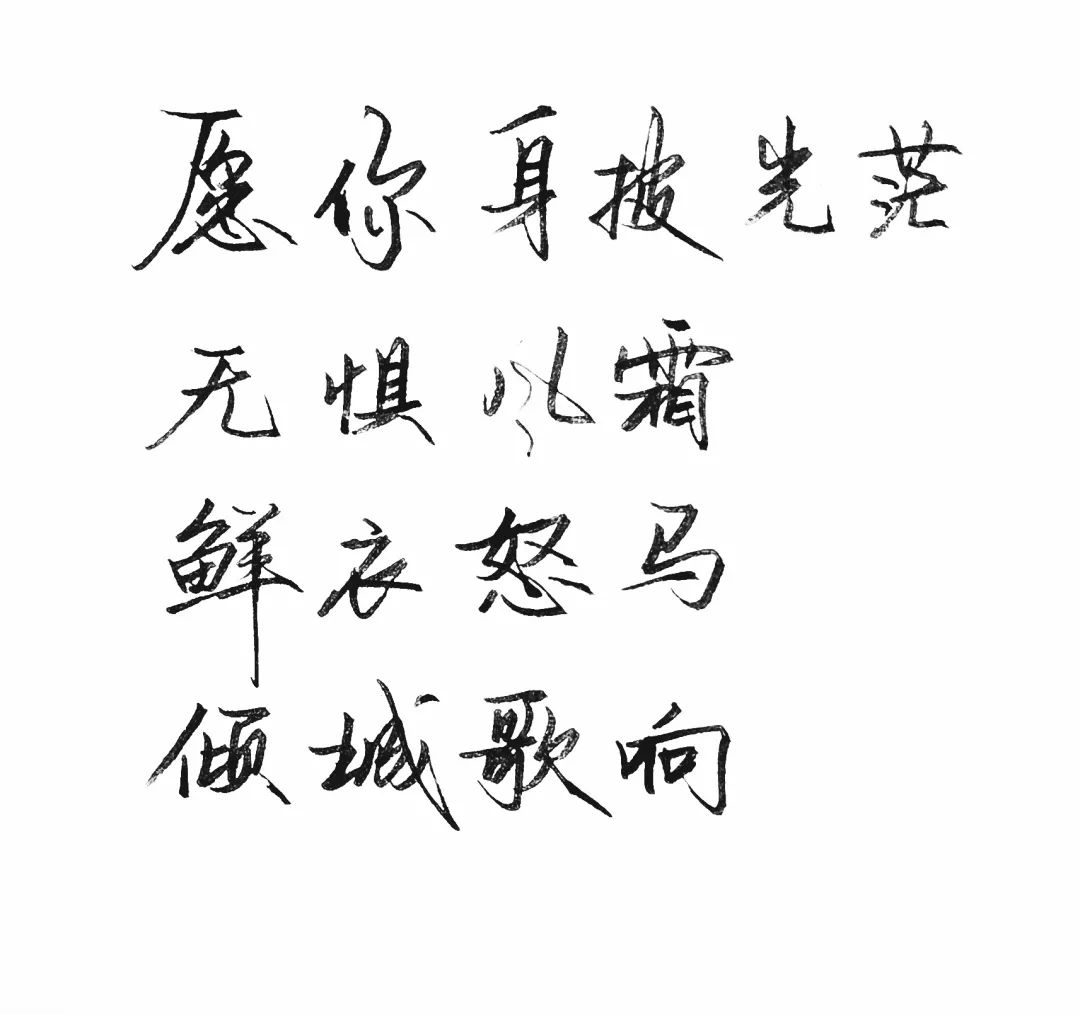 愿你身披光芒
无惧风霜
鲜衣怒马
倾城歌响